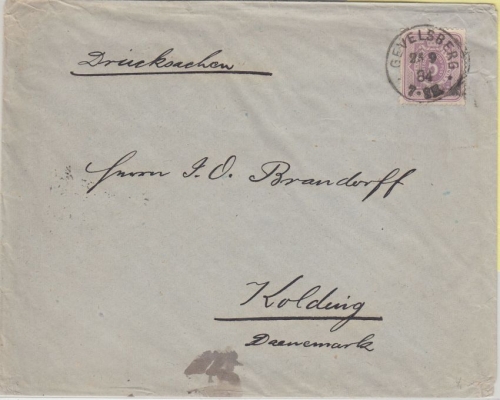 Drucksachen
GEVELSBERG
25 9
84
7-8N.
Herrn J. O. Brandorff
Kolding
Daenemark